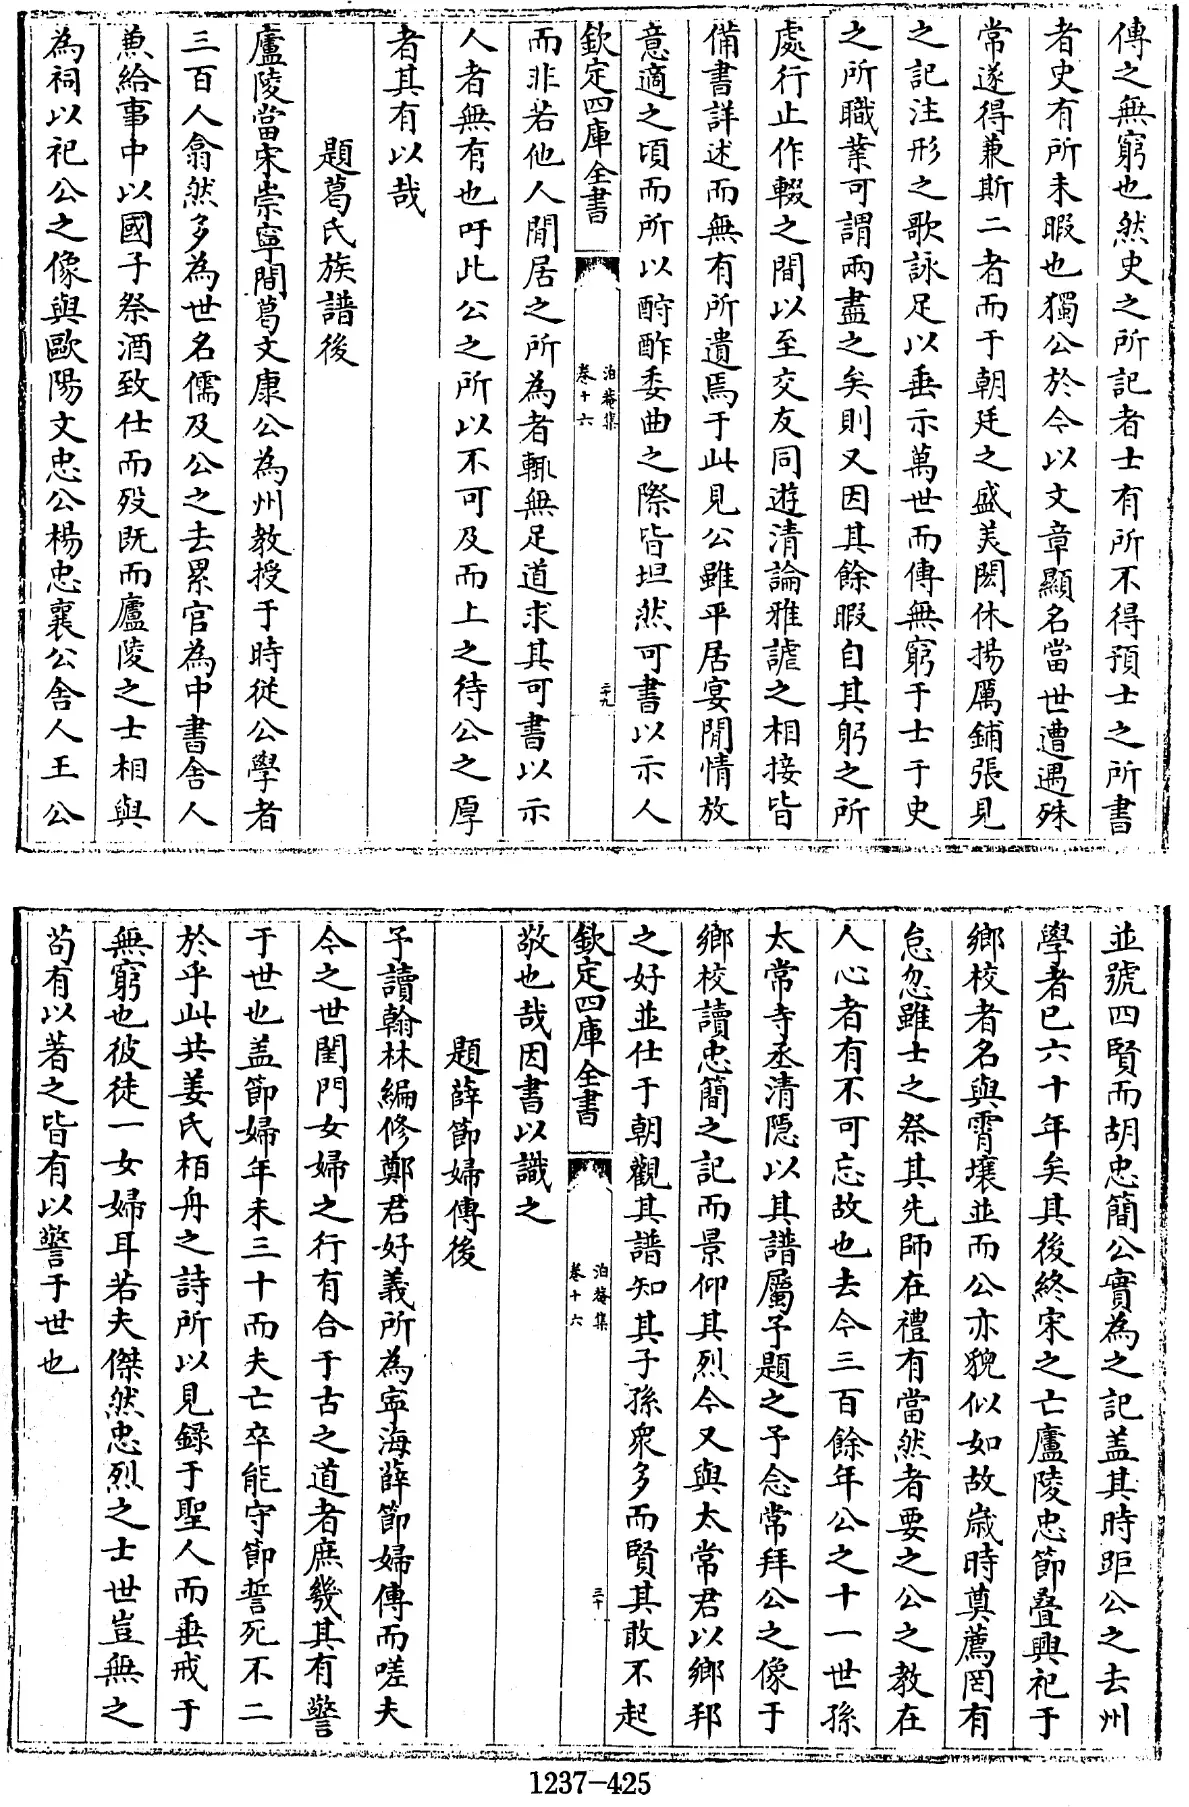 傳之無窮也然史之所記者士有所不得預士之所書
者史有所未暇也獨公於今以文章顯名當世遭遇殊
常遂得兼斯二者而于朝廷之盛美閎休揚厲鋪張見
之記注形之歌詠足以垂示萬世而傳無窮于士于史
之所職業可謂兩盡之矣則又因其餘暇自其躬之所
處行止作輟之間以至交友同遊清論雅謔之相接皆
備書詳述而無有所遺焉于此見公雖平居宴閒情放
意適之頃而所以酧酢委曲之際皆坦然可書以示人
欽定四庫全書
泊菴集
卷十六
二十九
而非若他人閒居之所為者輒無足道求其可書以示
人者無有也吁此公之所以不可及而上之待公之厚
者其有以哉
題葛氏族譜後
廬陵當宋崇寧間葛文康公為州教授于時從公學者
三百人翕然多為世名儒及公之去累官為中書舍人
兼給事中以國子祭酒致仕而殁既而廬陵之士相與
為祠以祀公之像與歐陽文忠公楊忠襄公舍人王公
並號四賢而胡忠簡公實為之記盖其時距公之去州
學者已六十年矣其後終宋之亡廬陵忠節叠興祀于
鄉校者名與霄壤並而公亦貌似如故歲時奠薦罔有
怠忽雖士之祭其先師在禮有當然者要之公之教在
人心者有不可忘故也去今三百餘年公之十一世孫
太常寺丞清隱以其譜屬予題之予念常拜公之像于
鄉校讀忠簡之記而景仰其烈今又與太常君以鄉邦
之好並仕于朝觀其譜知其子孫衆多而賢其敢不起
欽定四庫全書
泊菴集
卷十六
三十
敬也哉因書以識之
題薛節婦傳後
予讀翰林編修鄭君好義所為寧海薛節婦傳而嗟夫
今之世閨門女婦之行有合于古之道者庶幾其有警
于世也盖節婦年未三十而夫亡卒能守節誓死不二
於乎此共姜氏栢舟之詩所以見錄于聖人而垂戒于
無窮也彼徒一女婦耳若夫傑然忠烈之士世豈無之
苟有以著之皆有以警于世也
1237-425